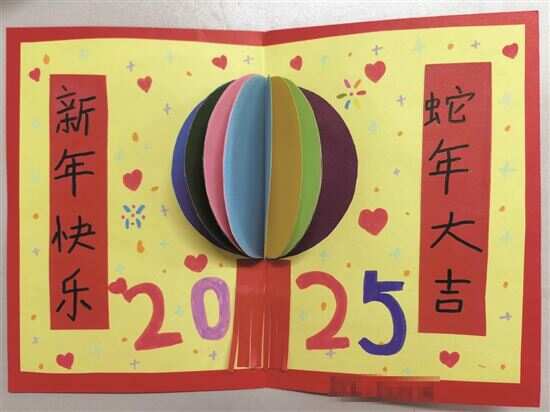 新年快乐
蛇年大吉
2025